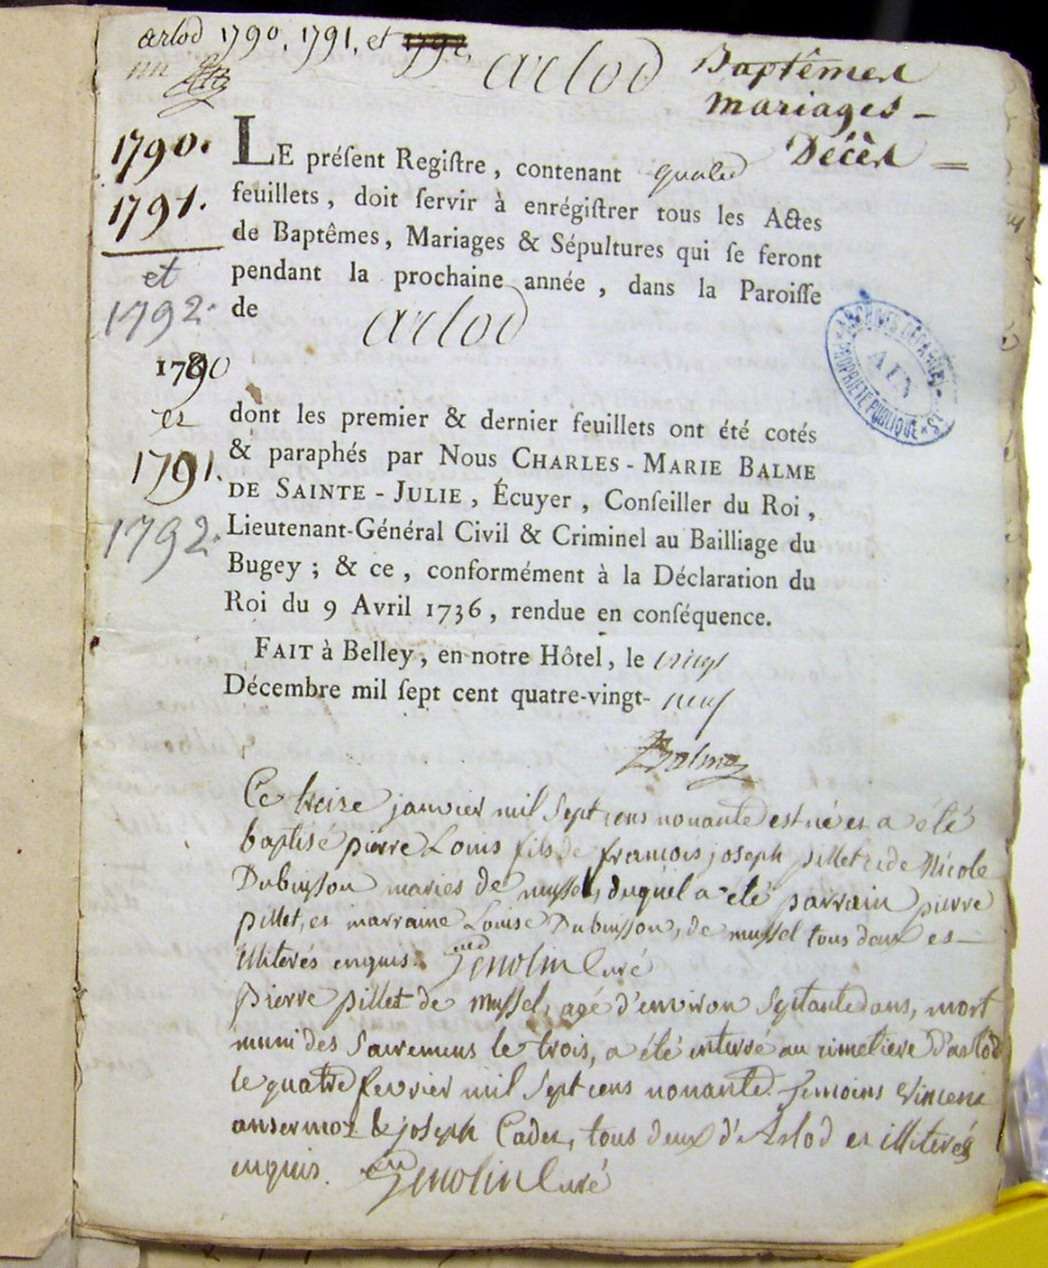 arlod 1790, 1791, et 1792,
arlod
Baptêmes
mariages -
Décès =
1790.
1791.
et
1792.
LE préſent Regiſtre, contenant quatre
feuillets, doit ſervir à enrégiſtrer tous les Actes
de Baptêmes, Mariages & Sépultures qui ſe feront
pendant la prochaine année, dans la Paroiſſe
de arlod
1790
et
1791.
1792.
dont les premier & dernier feuillets ont été cotés
& paraphés par Nous CHARLES-MARIE BALME
DE SAINTE-JULIE, Écuyer, Conſeiller du Roi,
Lieutenant-Général Civil & Criminel au Bailliage du
Bugey; & ce, conformément à la Déclaration du
Roi du 9 Avril 1736, rendue en conſéquence.
FAIT à Belley, en notre Hôtel, le vingt
Décembre mil ſept cent quatre-vingt-neuf
Balme
ARCHIVES DÉPARTEMENTALES
AIN
PROPRIÉTÉ PUBLIQUE
Ce treize janvier mil sept cens nonante est né et a été
baptisé pierre Louis fils de françois joseph pillet et de Nicole
Dubuisson maries de mussel, duquel a été parrain pierre
pillet, et marraine Louise Dubuisson, de mussel tous deux et
illiterés enquis. Genolin Curé
pierre pillet de mussel, agé d'environ septante ans, mort
muni des sacremens le trois, a été enterré au cimetiere d'arlod
le quatre fevrier mil sept cens nonante. Temoins vincent
ansermoz & joseph Cadet, tous deux d'Arlod et illiterés
enquis. Genolin Curé